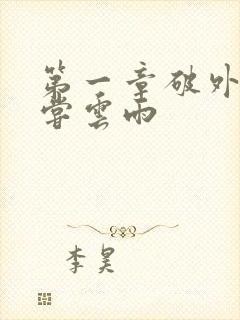 第一章破外
尝雲雨
李昊